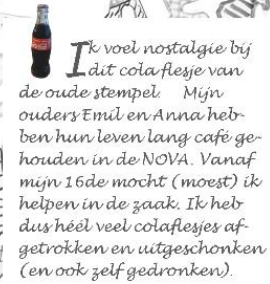 Ik voel nostalgie bij
dit cola flesje van
de oude stempel. Mijn
ouders Emil en Anna heb-
ben hun leven lang café ge-
houden in de NOVA. Vanaf
mijn 16de mocht (moest) ik
helpen in de zaak. Ik heb
dus héél veel colaflesjes af-
getrokken en uitgeschonken
(en ook zelf gedronken).